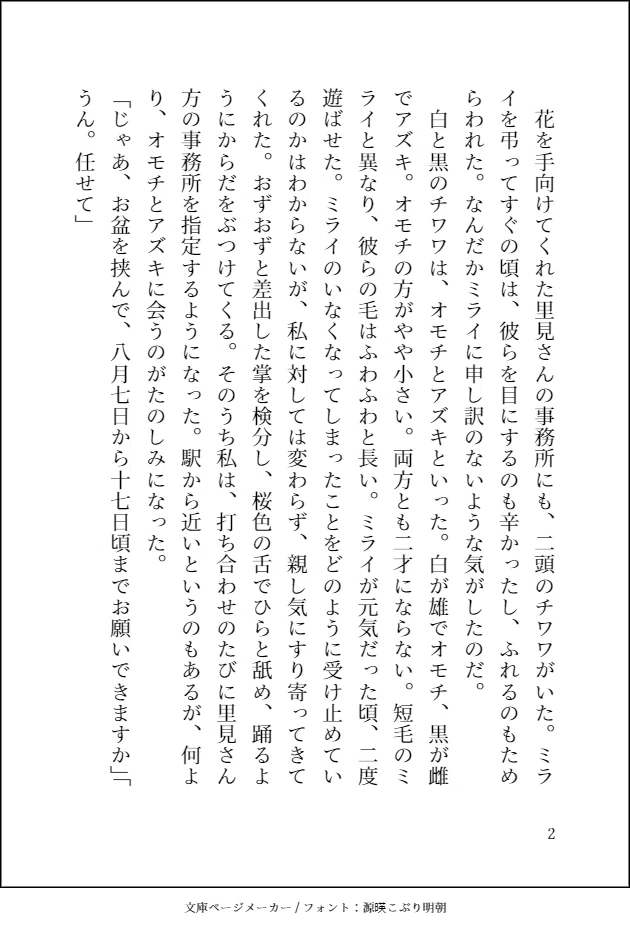 花を手向けてくれた里見さんの事務所にも、二頭のチワワがいた。ミラ
イを弔ってすぐの頃は、彼らを目にするのも辛かったし、ふれるのもため
らわれた。なんだかミライに申し訳のないような気がしたのだ。
　白と黒のチワワは、オモチとアズキといった。白が雄でオモチ、黒が雌
でアズキ。オモチの方がやや小さい。両方とも二才にならない。短毛のミ
ライと異なり、彼らの毛はふわふわと長い。ミライが元気だった頃、二度
遊ばせた。ミライのいなくなってしまったことをどのように受け止めてい
るのかはわからないが、私に対しては変わらず、親し気にすり寄ってきて
くれた。おずおずと差出した掌を検分し、桜色の舌でひらと舐め、踊るよ
うにからだをぶつけてくる。そのうち私は、打ち合わせのたびに里見さん
方の事務所を指定するようになった。駅から近いというのもあるが、何よ
り、オモチとアズキに会うのがたのしみになった。
「じゃあ、お盆を挟んで、八月七日から十七日頃までお願いできますか」「
うん。任せて」
2
文庫ページメーカー / フォント：源暎こぶり明朝